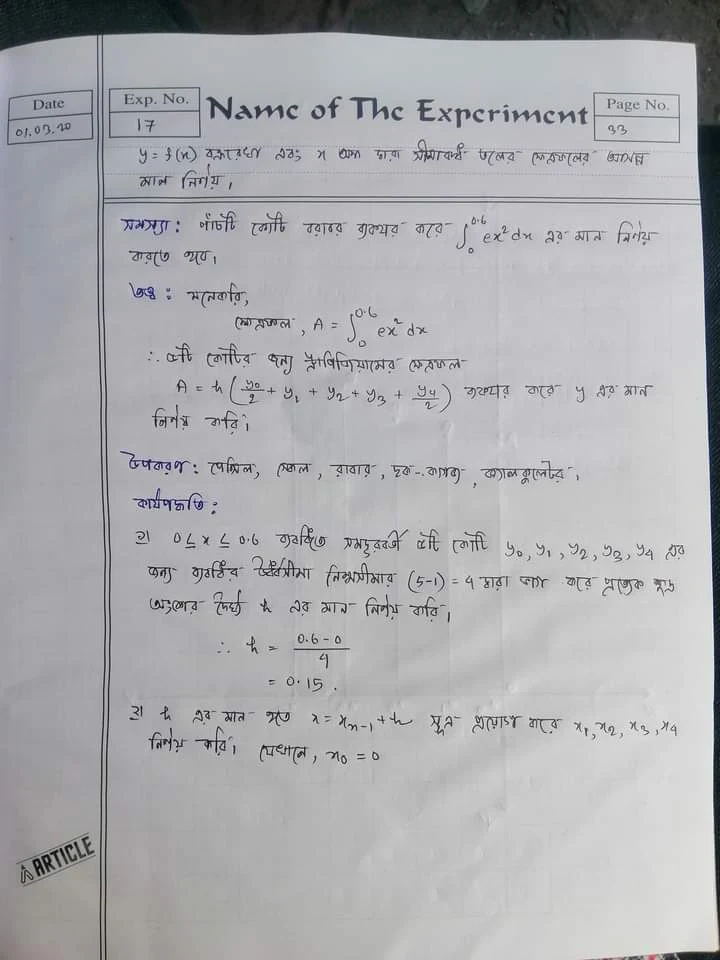 Date
01.03.20
Exp. No.
17
Name of The Experiment
Page No.
33
y = f(x) বক্ররেখা এবং x অক্ষ দ্বারা সীমাবদ্ধ তলের ক্ষেত্রফলের আসন্ন
মান নির্ণয়।
সমস্যা: পাঁচটি কোটি বরাবর ব্যবহার করে ∫₀^0.6 ex² dx এর মান নির্ণয়
করতে হবে।
তত্ত্ব: মনেকরি,
ক্ষেত্রফল, A = ∫₀^0.6 ex² dx
∴ ৫টি কোটির জন্য ট্রাপিজিয়ামের ক্ষেত্রফল
A = h (y₀/2 + y₁ + y₂ + y₃ + y₄/2) ব্যবহার করে y এর মান
নির্ণয় করি।
উপকরণ: পেন্সিল, স্কেল, রাবার, ছক-কাগজ, ক্যালকুলেটর।
কার্যপদ্ধতি:
১) 0 ≤ x ≤ 0.6 ব্যবধিতে সমদূরবর্তী ৫টি কোটি y₀, y₁, y₂, y₃, y₄ এর
জন্য ব্যবধির ঊর্ধ্বসীমা নিম্নসীমার (5-1) = 4 দ্বারা ভাগ করে প্রত্যেক ক্ষুদ্র
অংশের দৈর্ঘ্য h এর মান নির্ণয় করি।
∴ h = (0.6 - 0)/4
= 0.15.
২) h এর মান হতে x = xₙ₋₁ + h সূত্র প্রয়োগ করে x₁, x₂, x₃, x₄
নির্ণয় করি। যেখানে, x₀ = 0
ARTICLE